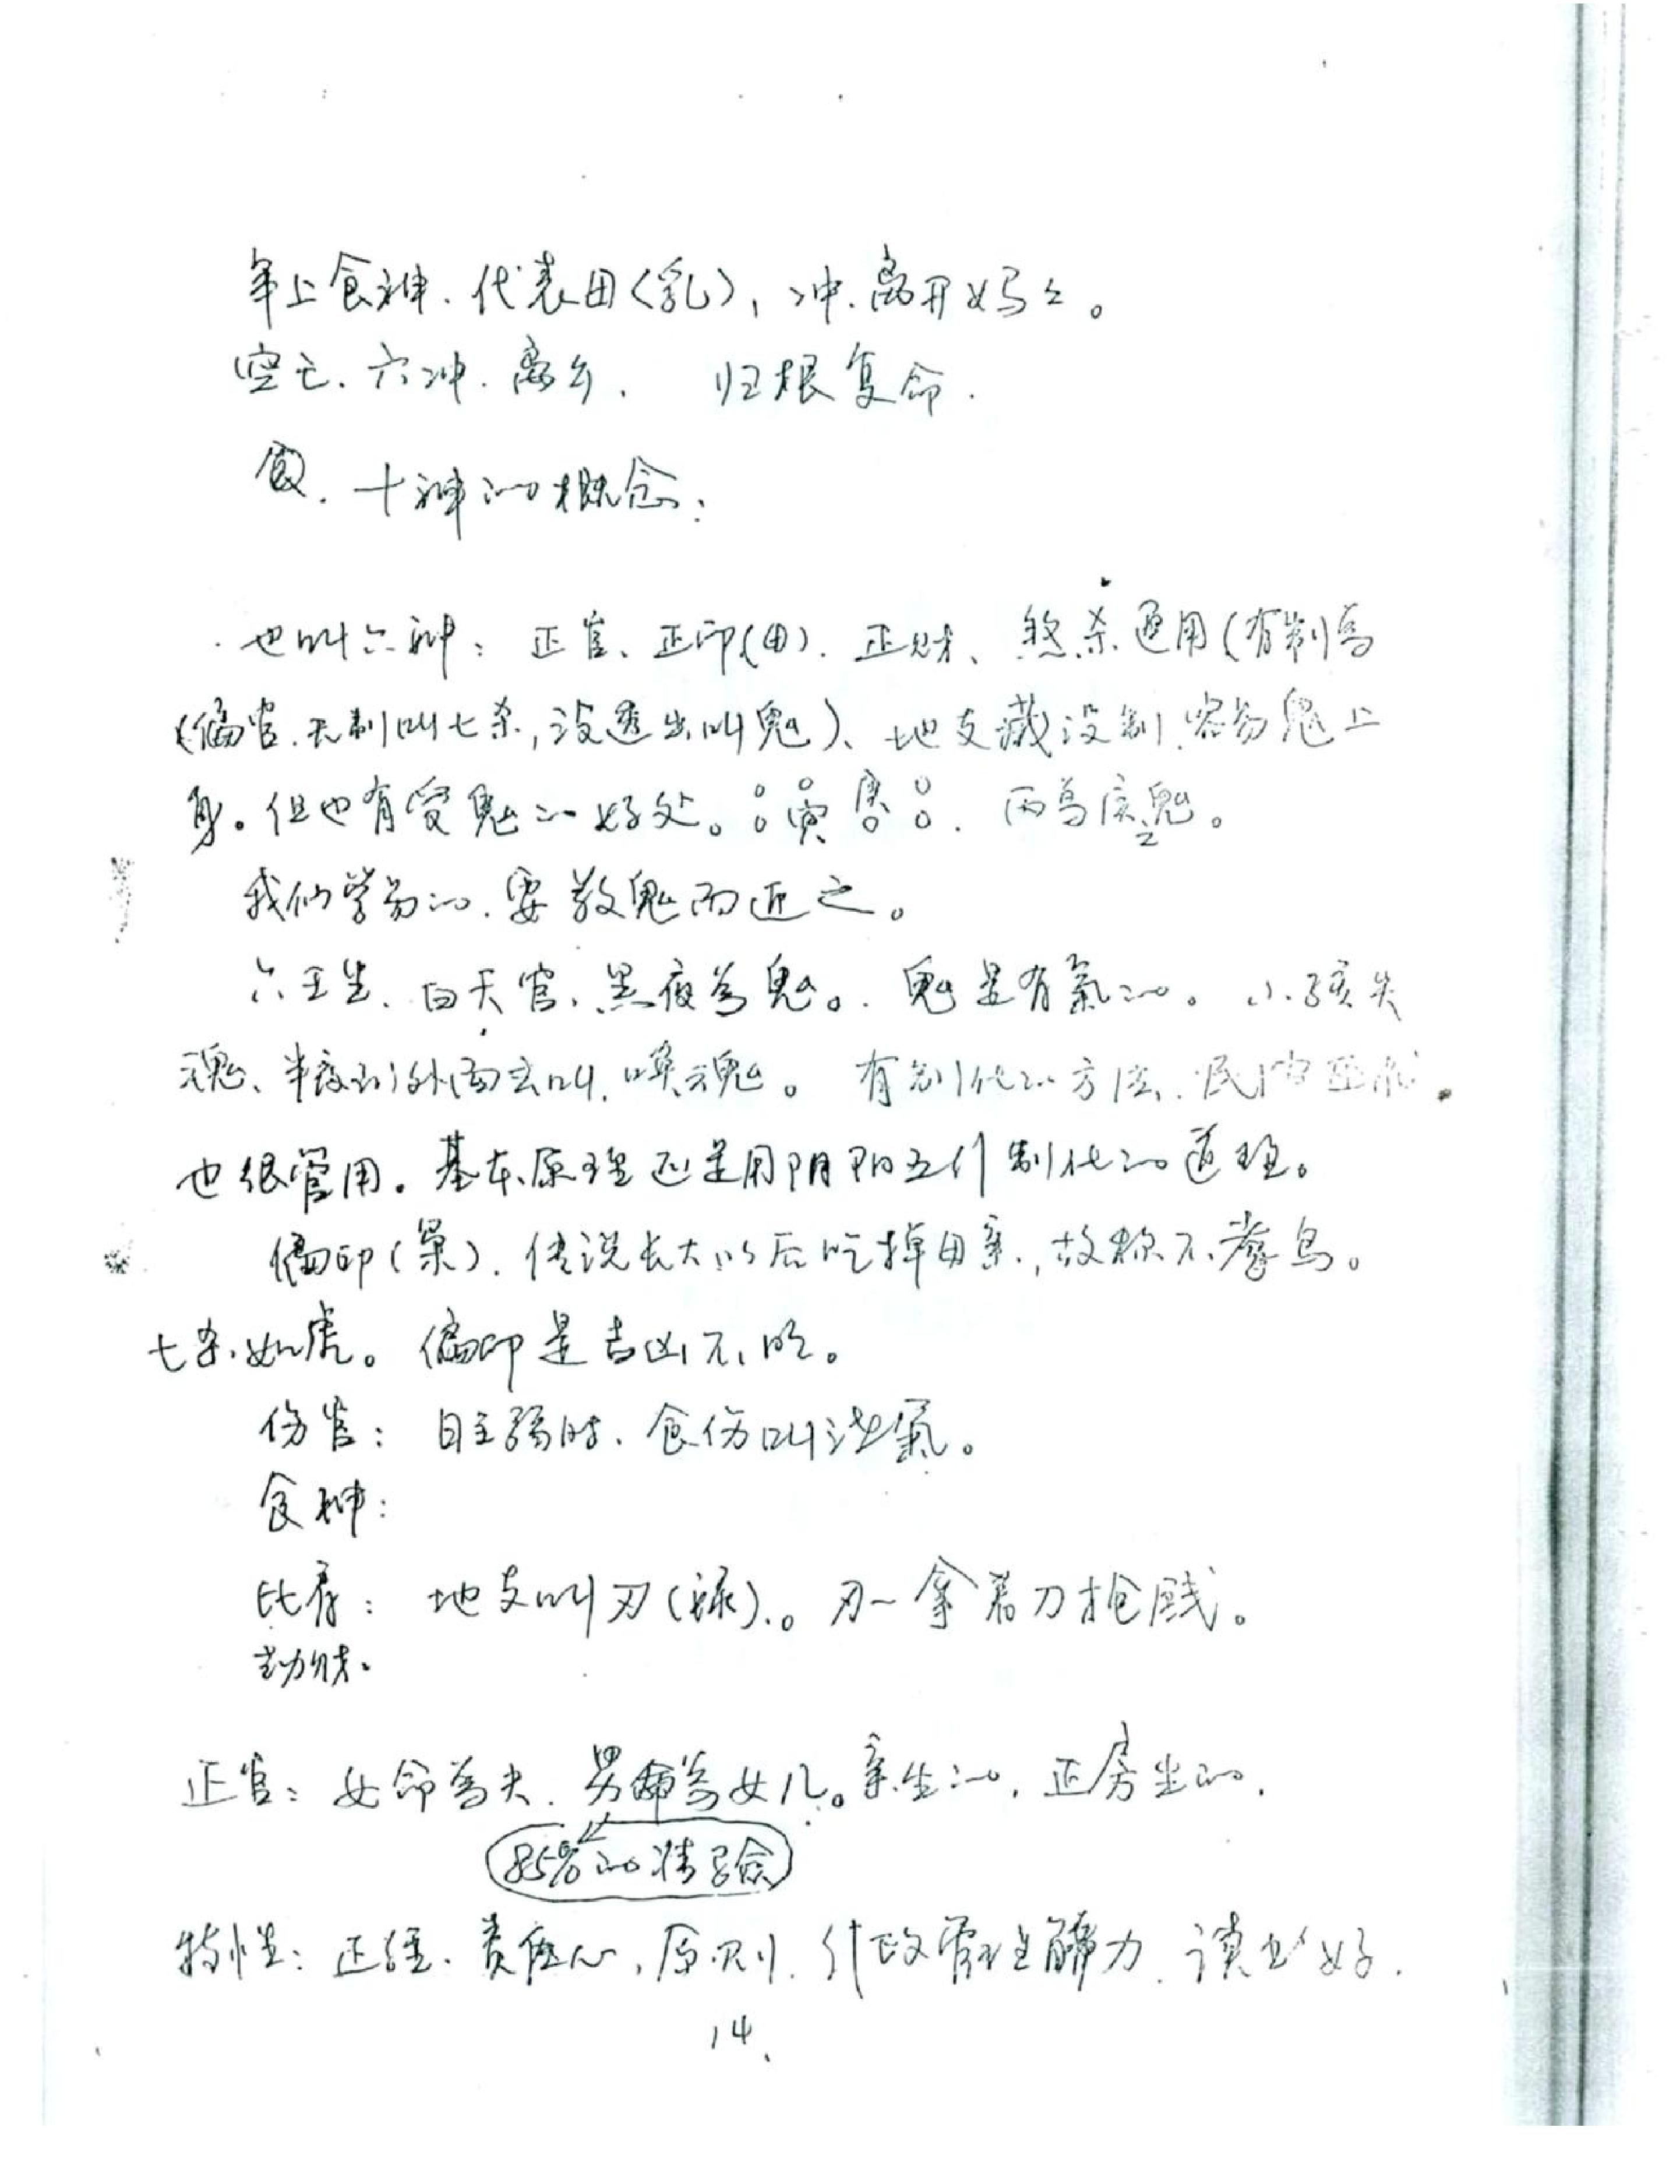 年上食神、代表母〈乳〉，冲、离开妈妈。
空亡、六冲、离乡. 归根复命.
十神的概念：
也叫六神：正官、正印(母)、正财、煞杀通用(有制为
(偏官、无制叫七杀，没透出叫鬼)、地支藏没制、容易鬼上
身。但也有受鬼的好处。：寅 庚 ：. 丙为庚鬼。
我们学易的、要敬鬼而近之。
六壬里、白天官、黑夜为鬼。鬼是有氣的。小孩失
魂、半夜到外面去叫、唤魂。有制化的方法、民间巫术.
也很管用。基本原理还是用阴阳五行制化的道理。
偏印(枭)、传说长大以后吃掉母亲，故称不孝鸟。
七杀如虎。偏印是吉凶不明。
伤官：日主弱时、食伤叫泄氣。
食神：
比肩：地支叫刃(禄)。刃—拿着刀抢钱。
劫财.
正官：女命为夫、男命为女儿。亲生的，正房生的.
85%的准验
特性：正经、责任心，原则、行政管理能力、读书好.
14、